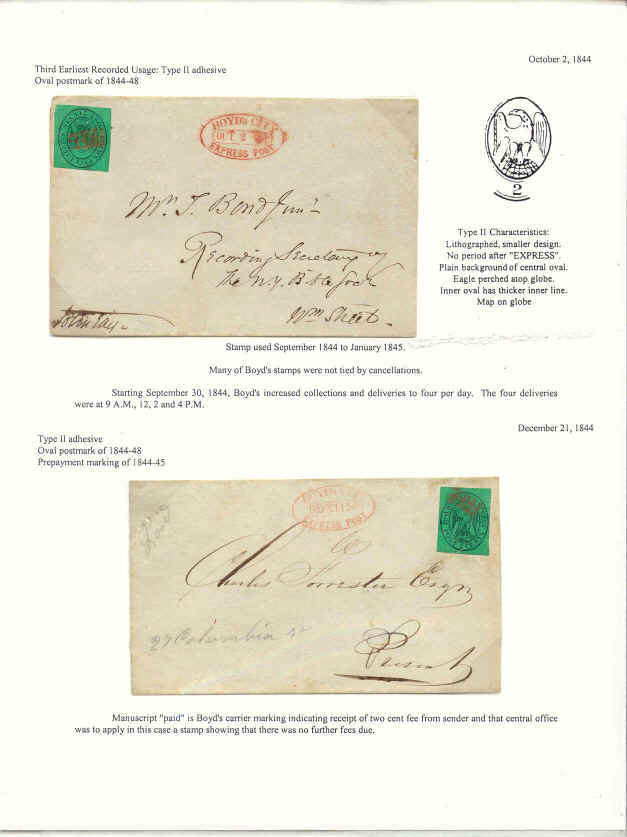 October 2, 1844
Third Earliest Recorded Usage: Type II adhesive
Oval postmark of 1844-48
BOYD'S CITY
OCT 2
EXPRESS POST
Mr. T. Bond Junr
Recording Secretary of
the N.Y. Bible Soc
Wm Street.
John Jay
2
Type II Characteristics:
Lithographed, smaller design.
No period after "EXPRESS".
Plain background of central oval.
Eagle perched atop globe.
Inner oval has thicker inner line.
Map on globe
Stamp used September 1844 to January 1845.
Many of Boyd's stamps were not tied by cancellations.
Starting September 30, 1844, Boyd's increased collections and deliveries to four per day. The four deliveries
were at 9 A.M., 12, 2 and 4 P.M.
December 21, 1844
Type II adhesive
Oval postmark of 1844-48
Prepayment marking of 1844-45
BOYD'S CITY
EXPRESS POST
Charles Forrester Esqr
27 Columbia st
Present
Manuscript "paid" is Boyd's carrier marking indicating receipt of two cent fee from sender and that central office
was to apply in this case a stamp showing that there was no further fees due.